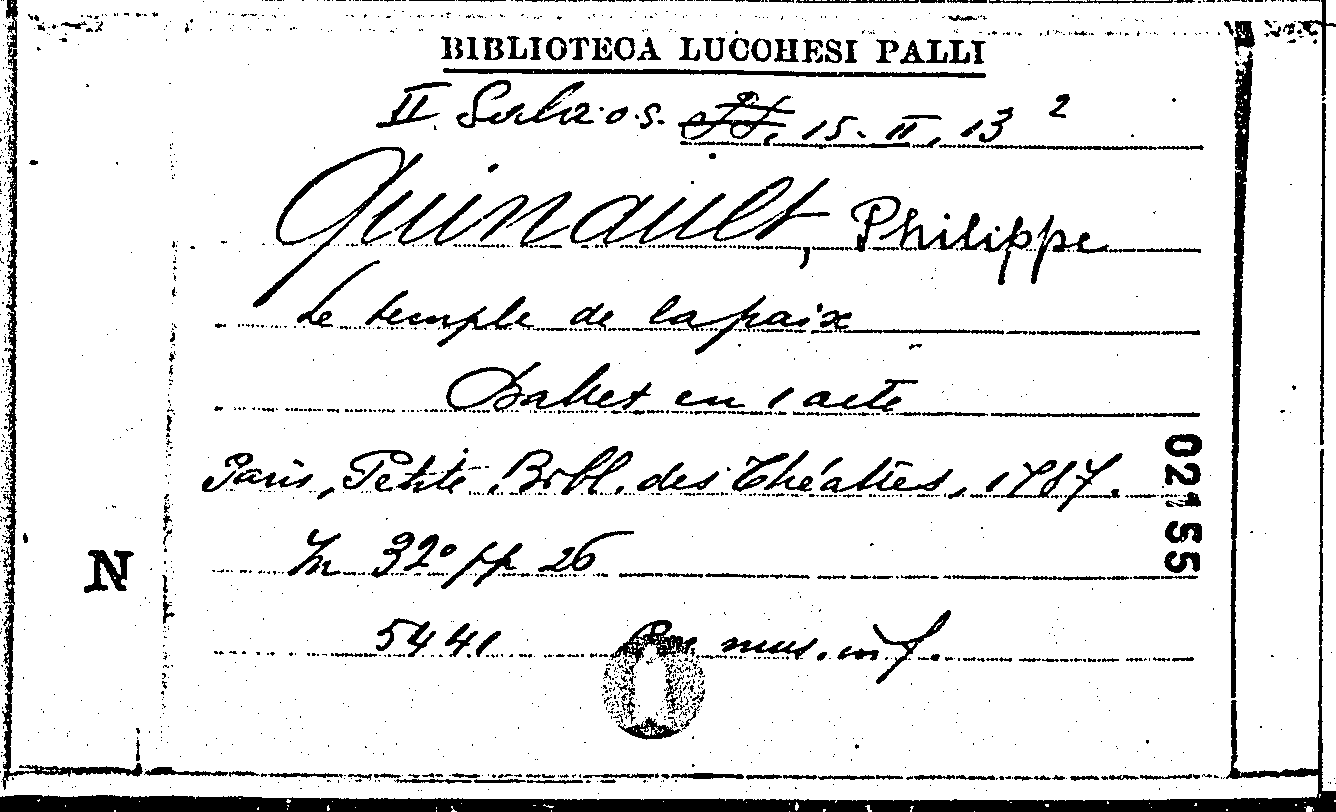 BIBLIOTECA LUCCHESI PALLI
II Sala o.s. 15. II, 13 2
Quinault, Philippe
Le temple de la paix
Ballet en 1 acte
Paris, Petite Bibl. des Théatres, 1787.
02155
N
In 32º pp 26
5441 mus. inf.